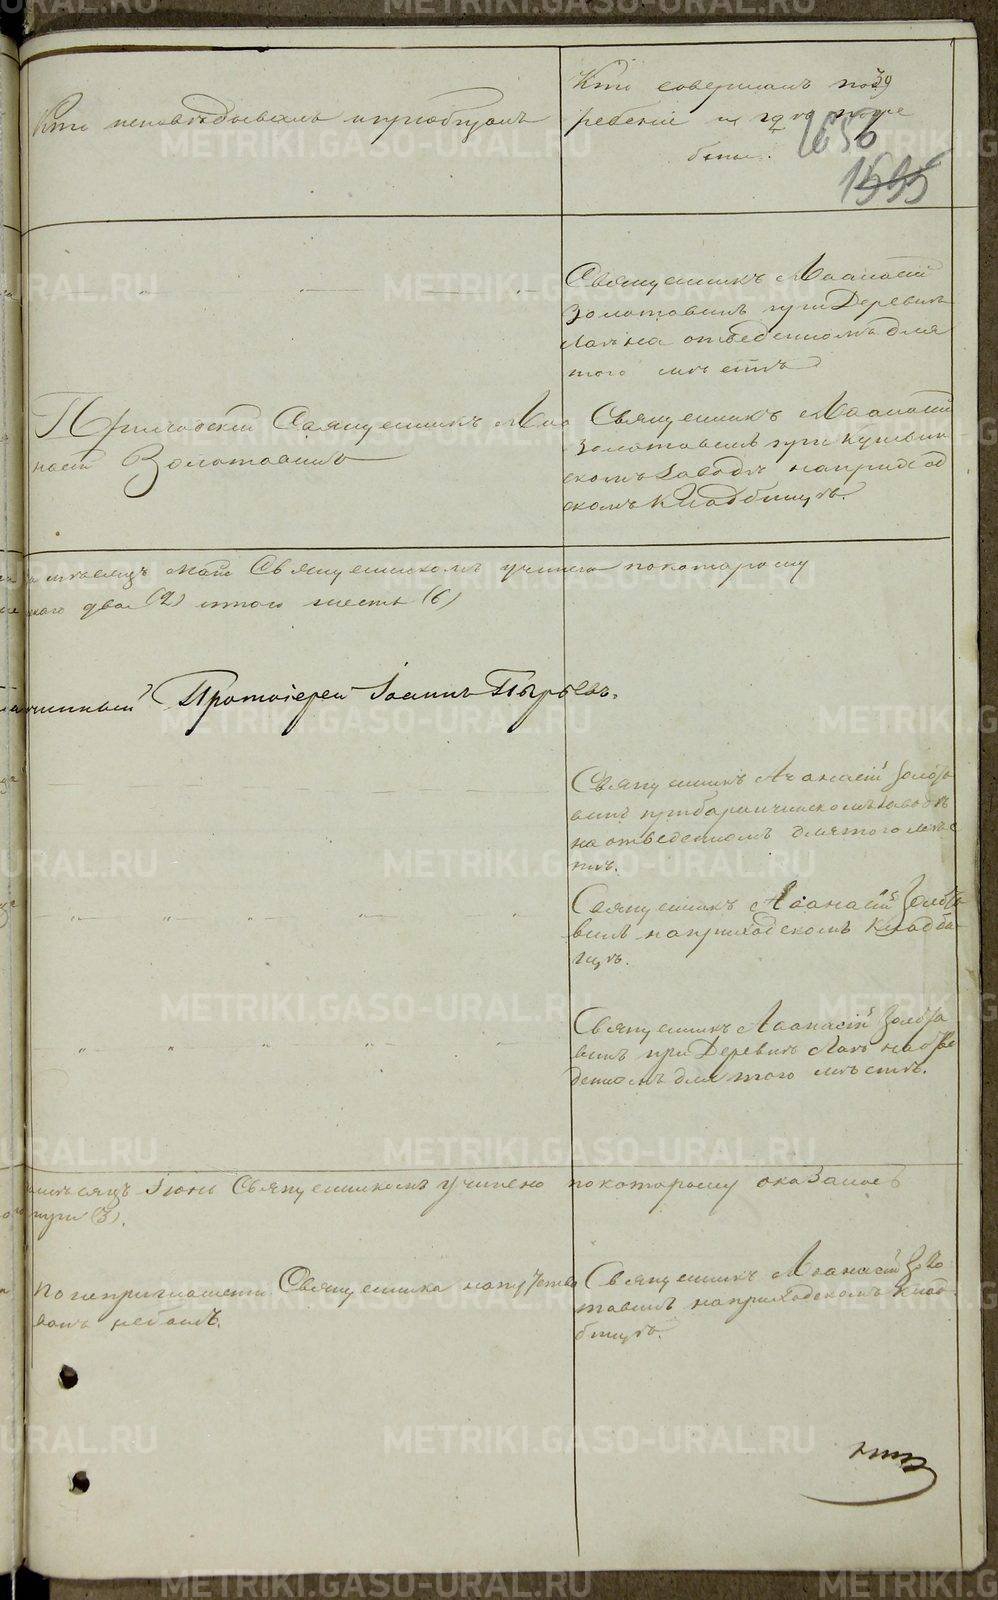 Кто исповѣдывалъ и пріобщалъ
Кто совершалъ пог
ребеніе и гдѣ погре
бены.
1636
Священникъ Аѳанасій
Золотавинъ при Деревнѣ
на отведенномъ для
того мѣстѣ
Приходскій Священникъ Аѳа
насій Золотавинъ
Священникъ Аѳанасій
Золотавинъ при Кушвин
скомъ Заводѣ на приход
скомъ Кладбищѣ.
мѣсяцъ Май Священникомъ учинено по которому
два (2) итого шесть (6)
Протоіерей Іоаннъ Пырьевъ.
Священникъ Аѳанасій Золота
винъ при Баранчинскомъ Заводѣ
на отведенномъ для того мѣс
тѣ.
Священникъ Аѳанасій Золота
винъ на приходскомъ Кладби
щѣ.
Священникъ Аѳанасій Золота
винъ при Деревнѣ на отве
денномъ для того мѣстѣ.
мѣсяцъ Іюнь Священникомъ учинено по которому оказалось
три (3).
По неприглашенію Священника напутство
ванъ не былъ.
Священникъ Аѳанасій Золо
тавинъ на приходскомъ Клад
бищѣ.
METRIKI.GASO-URAL.RU